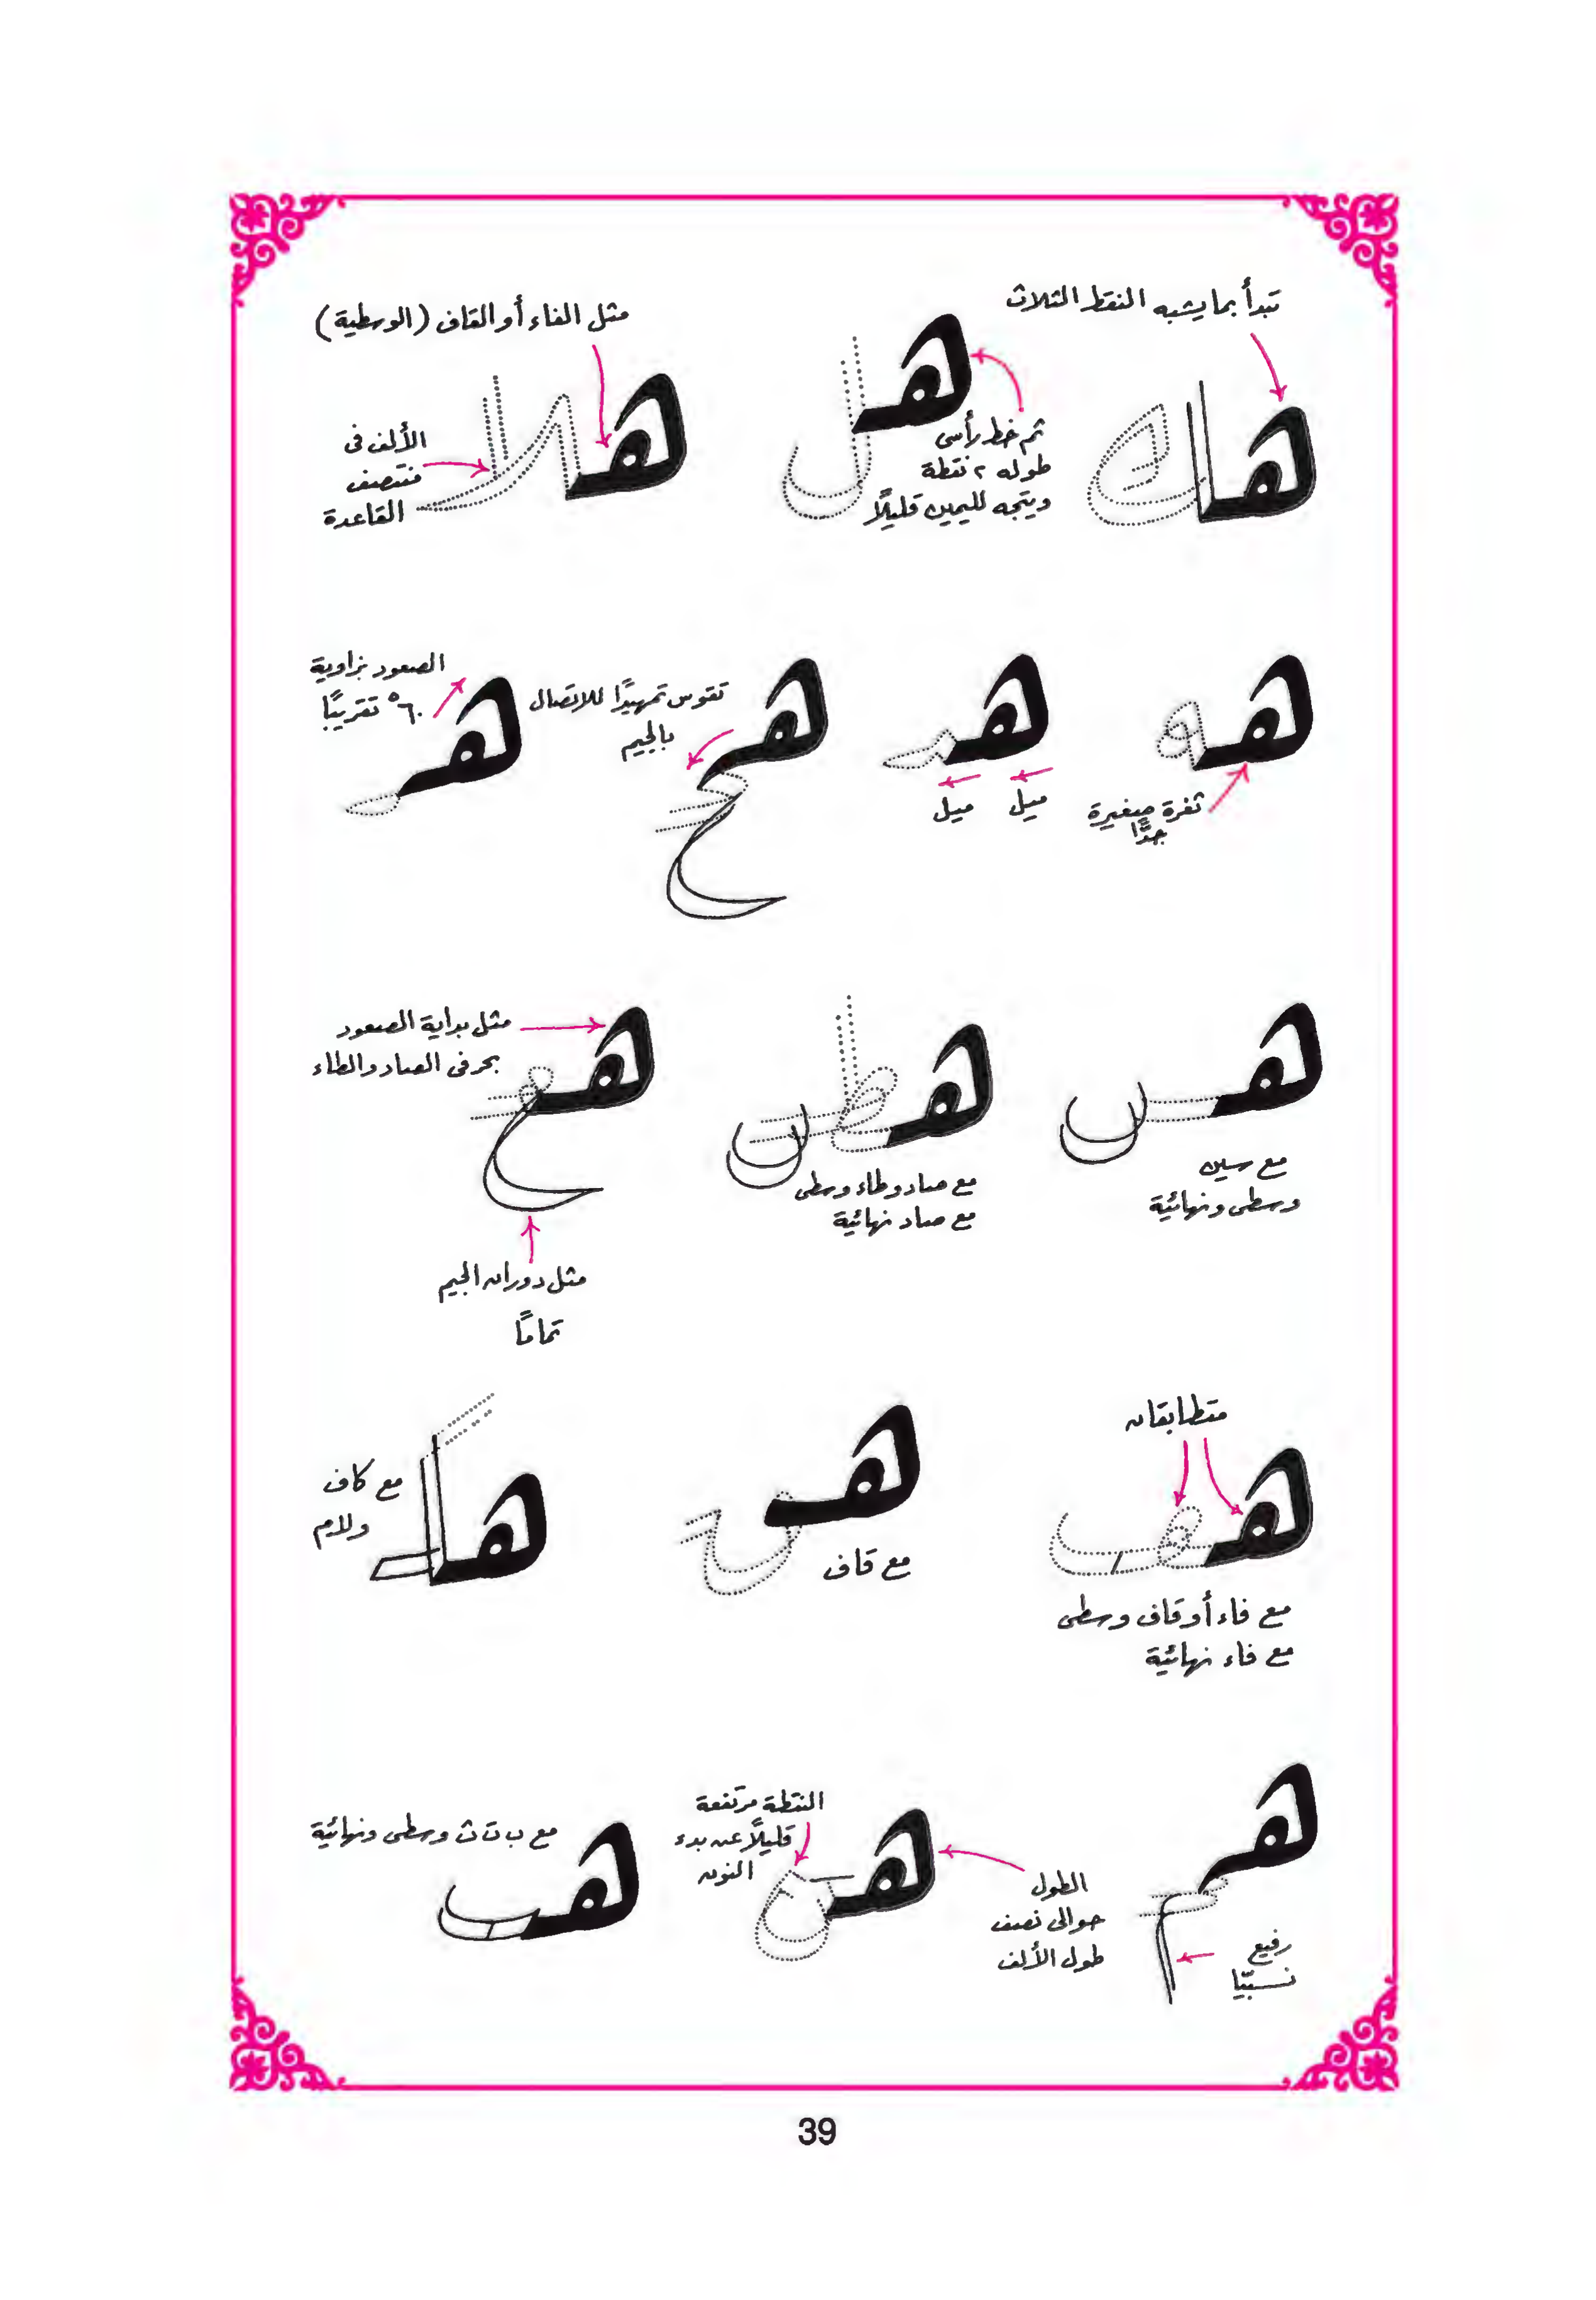 تبدأ بما يشبه النقط الثلاث
ثم خط رأسى
طوله ٢ نقطة
ويتجه لليمين قليلاً
مثل الفاء أو القاف (الوسطية)
الألف فى
منتصف
القاعدة
هك
هل
هلا
ثغرة صغيرة
جدًّا
ميل
ميل
تقوس تمهيدًا للاتصال
بالجيم
الصعود بزاوية
٦٠° تقريبًا
مع سين
وسطى ونهائية
مع صاد وطاء وسطى
مع صاد نهائية
مثل بداية الصعود
بحرفى الصاد والطاء
مثل دوران الجيم
تمامًا
متطابقان
مع فاء أو قاف وسطى
مع فاء نهائية
مع قاف
مع كاف
ولام
رفيع
نسبيًّا
الطول
حوالى نصف
طول الألف
النقطة مرتفعة
قليلاً عن بدء
النون
مع ب ت ث وسطى ونهائية
39